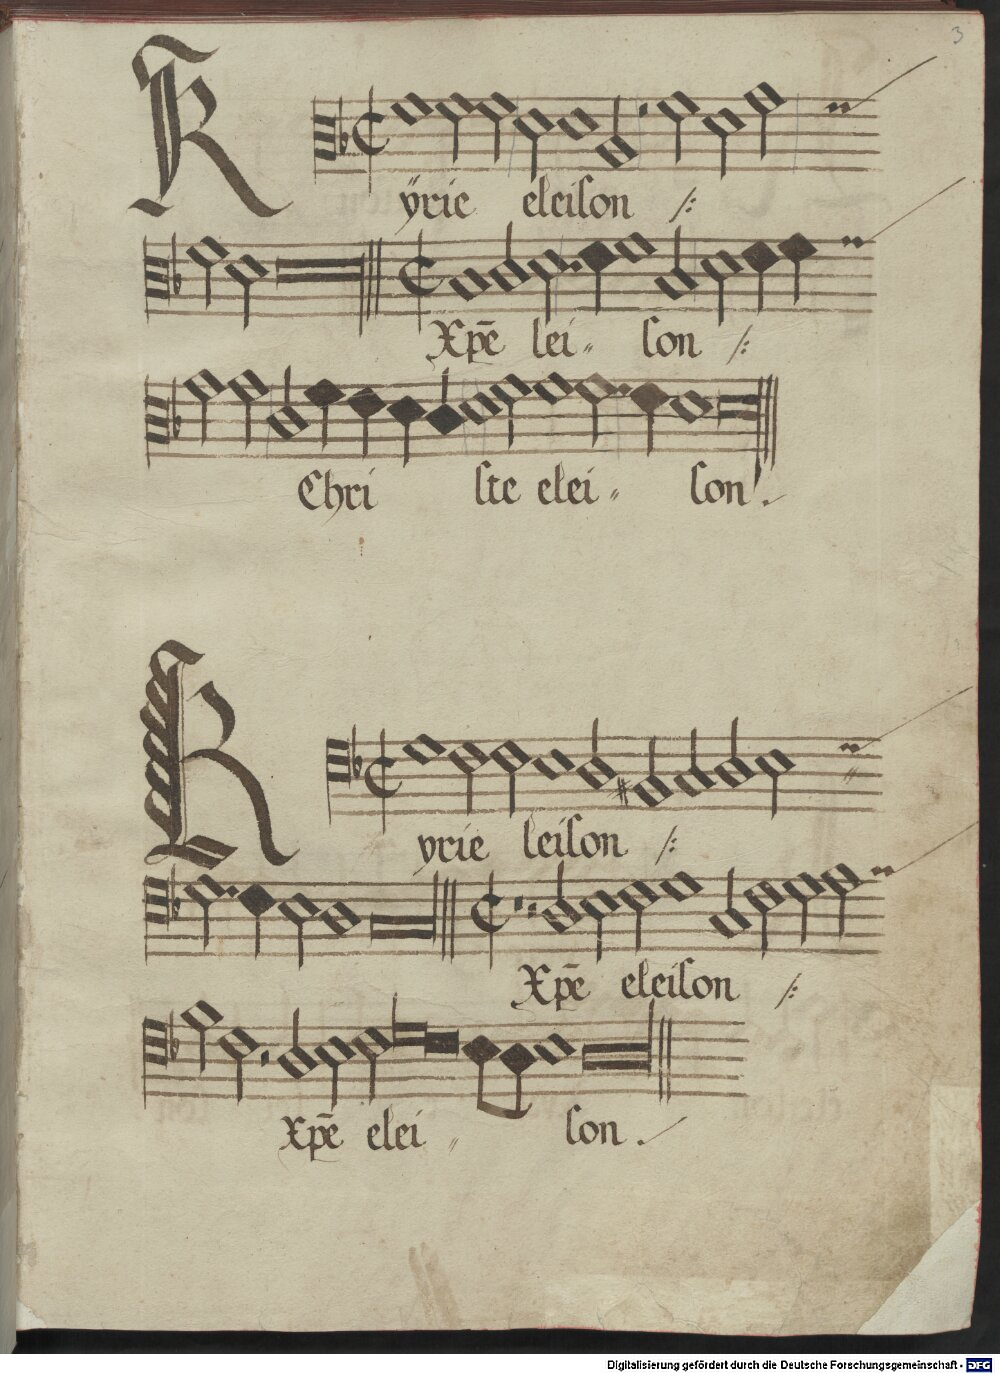 3
K
ÿrie eleiſon /:
Xpē lei〃 ſon /:
Chri ſte elei〃 ſon.
K
yrie leiſon /:
Xpē eleiſon /:
Xpē elei〃 ſon.
Digitalisierung gefördert durch die Deutsche Forschungsgemeinschaft - DFG